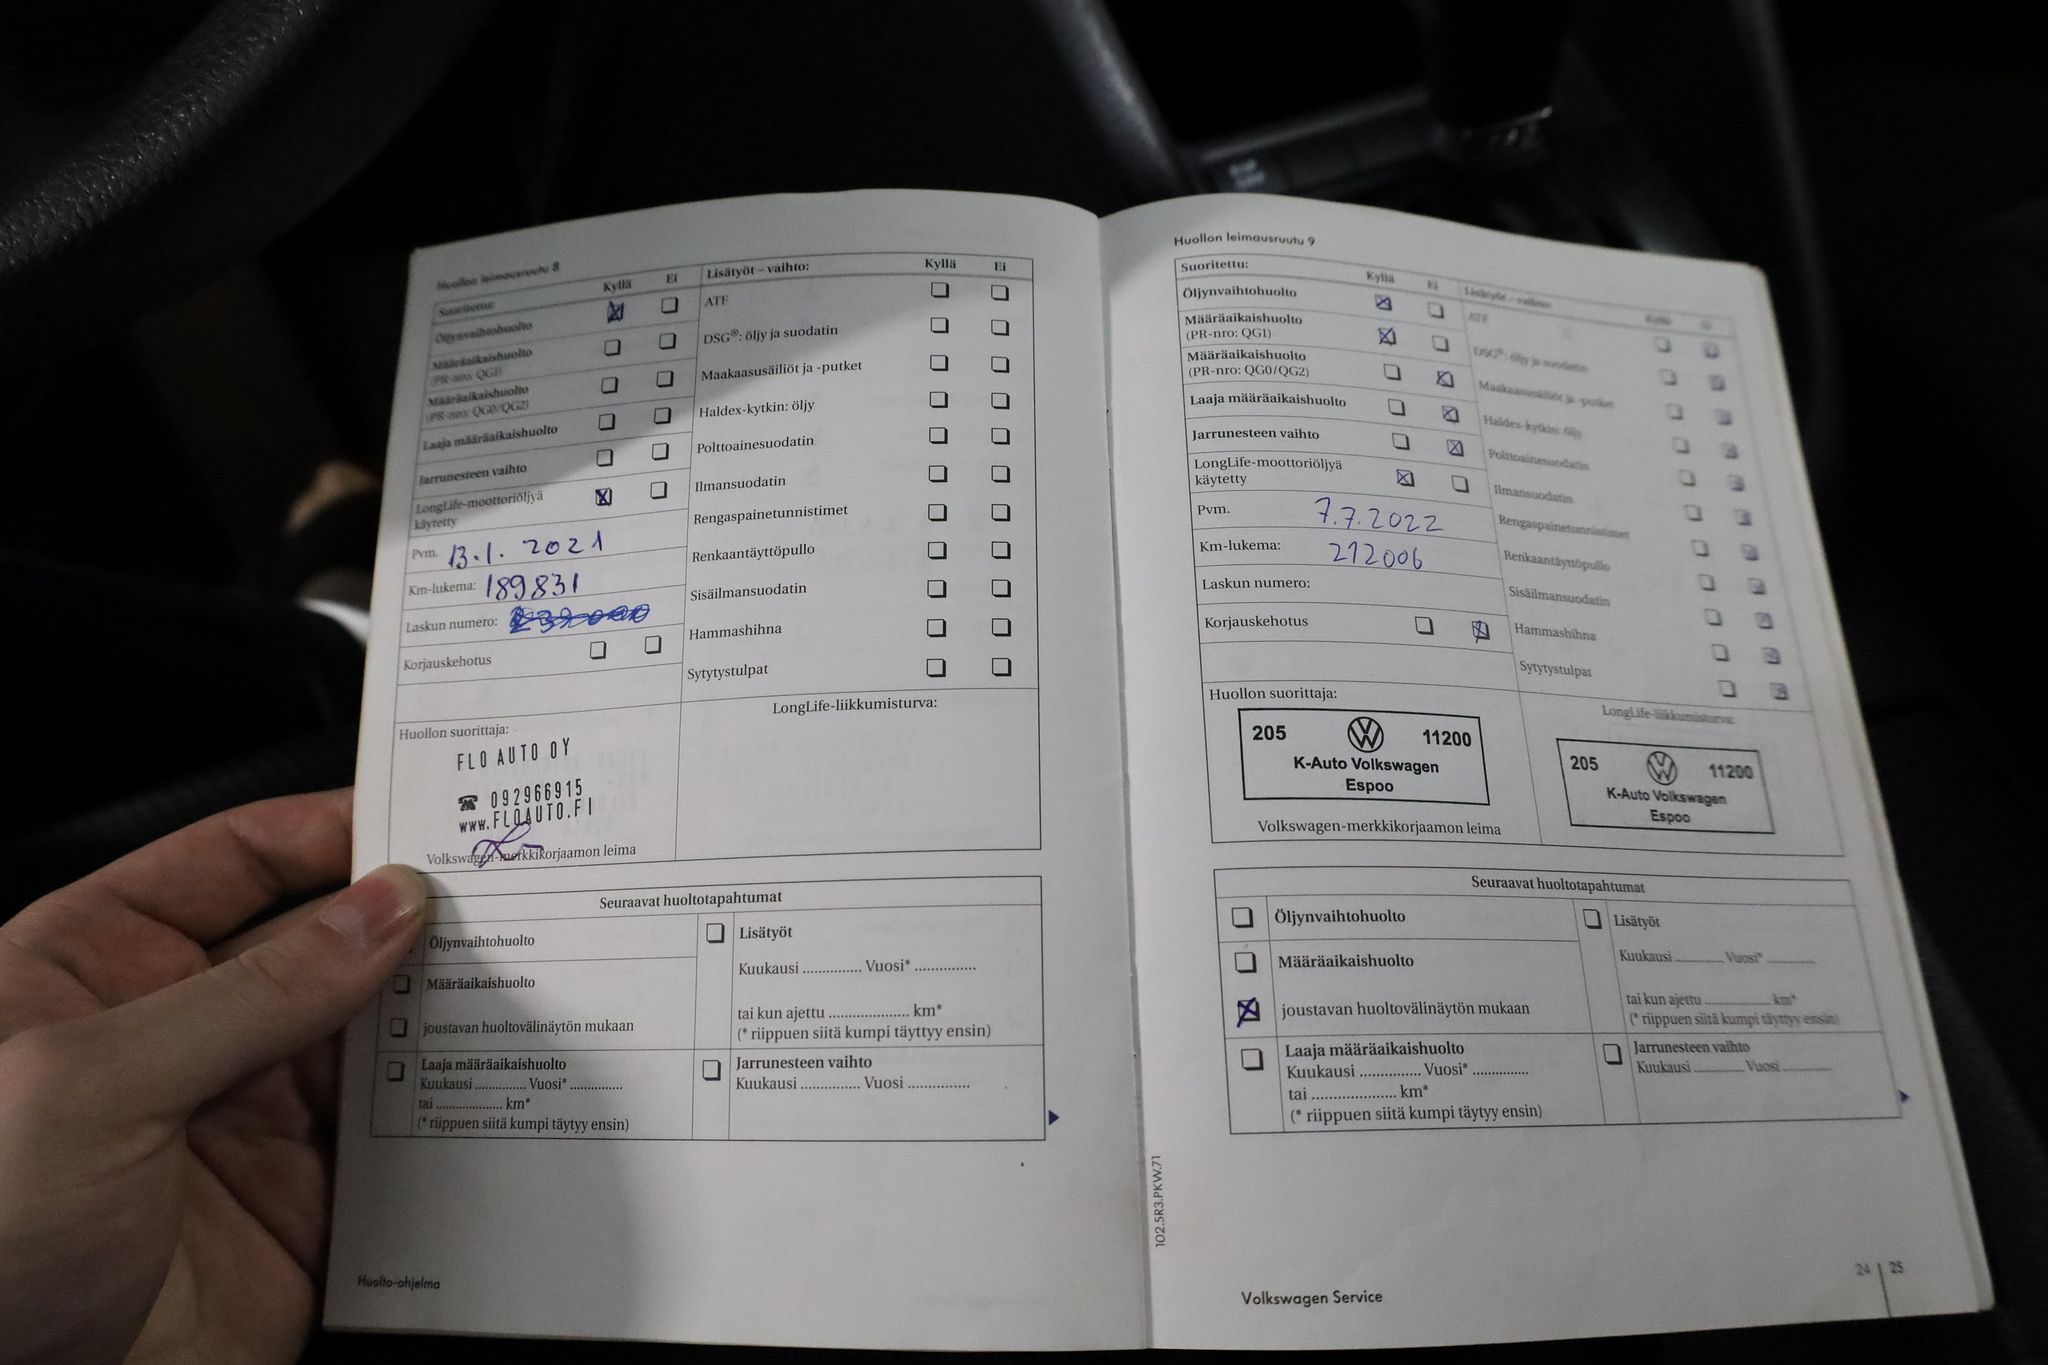 Huollon leimausruutu 8
Suoritettu: Kyllä Ei
Öljynvaihtohuolto
Määräaikaishuolto
(PR-nro: QG1)
Määräaikaishuolto
(PR-nro: QG0/QG2)
Laaja määräaikaishuolto
Jarrunesteen vaihto
LongLife-moottoriöljyä
käytetty
Pvm. 13.1. 2021
Km-lukema: 189831
Laskun numero:
Korjauskehotus
Huollon suorittaja:
FLO AUTO OY
☎ 092966915
www.FLOAUTO.FI
Volkswagen-merkkikorjaamon leima
Lisätyöt – vaihto: Kyllä Ei
ATF
DSG®: öljy ja suodatin
Maakaasusäiliöt ja -putket
Haldex-kytkin: öljy
Polttoainesuodatin
Ilmansuodatin
Rengaspainetunnistimet
Renkaantäyttöpullo
Sisäilmansuodatin
Hammashihna
Sytytystulpat
LongLife-liikkumisturva:
Seuraavat huoltotapahtumat
Öljynvaihtohuolto
Määräaikaishuolto
joustavan huoltovälinäytön mukaan
Laaja määräaikaishuolto
Kuukausi ............... Vuosi* ...............
tai .................... km*
(* riippuen siitä kumpi täytyy ensin)
Lisätyöt
Kuukausi ............... Vuosi* ...............
tai kun ajettu .................... km*
(* riippuen siitä kumpi täyttyy ensin)
Jarrunesteen vaihto
Kuukausi ............... Vuosi ...............
Huolto-ohjelma
Huollon leimausruutu 9
Suoritettu: Kyllä Ei
Öljynvaihtohuolto
Määräaikaishuolto
(PR-nro: QG1)
Määräaikaishuolto
(PR-nro: QG0/QG2)
Laaja määräaikaishuolto
Jarrunesteen vaihto
LongLife-moottoriöljyä
käytetty
Pvm. 7.7.2022
Km-lukema: 212006
Laskun numero:
Korjauskehotus
Huollon suorittaja:
205 11200
K-Auto Volkswagen
Espoo
Volkswagen-merkkikorjaamon leima
Lisätyöt – vaihto: Kyllä Ei
ATF
DSG®: öljy ja suodatin
Maakaasusäiliöt ja -putket
Haldex-kytkin: öljy
Polttoainesuodatin
Ilmansuodatin
Rengaspainetunnistimet
Renkaantäyttöpullo
Sisäilmansuodatin
Hammashihna
Sytytystulpat
LongLife-liikkumisturva:
205 11200
K-Auto Volkswagen
Espoo
Seuraavat huoltotapahtumat
Öljynvaihtohuolto
Määräaikaishuolto
joustavan huoltovälinäytön mukaan
Laaja määräaikaishuolto
Kuukausi ............... Vuosi* ...............
tai .................... km*
(* riippuen siitä kumpi täytyy ensin)
Lisätyöt
Kuukausi ............... Vuosi* ...............
tai kun ajettu .................... km*
(* riippuen siitä kumpi täyttyy ensin)
Jarrunesteen vaihto
Kuukausi ............... Vuosi ...............
102.5R3.PKW.71
Volkswagen Service
24 | 25